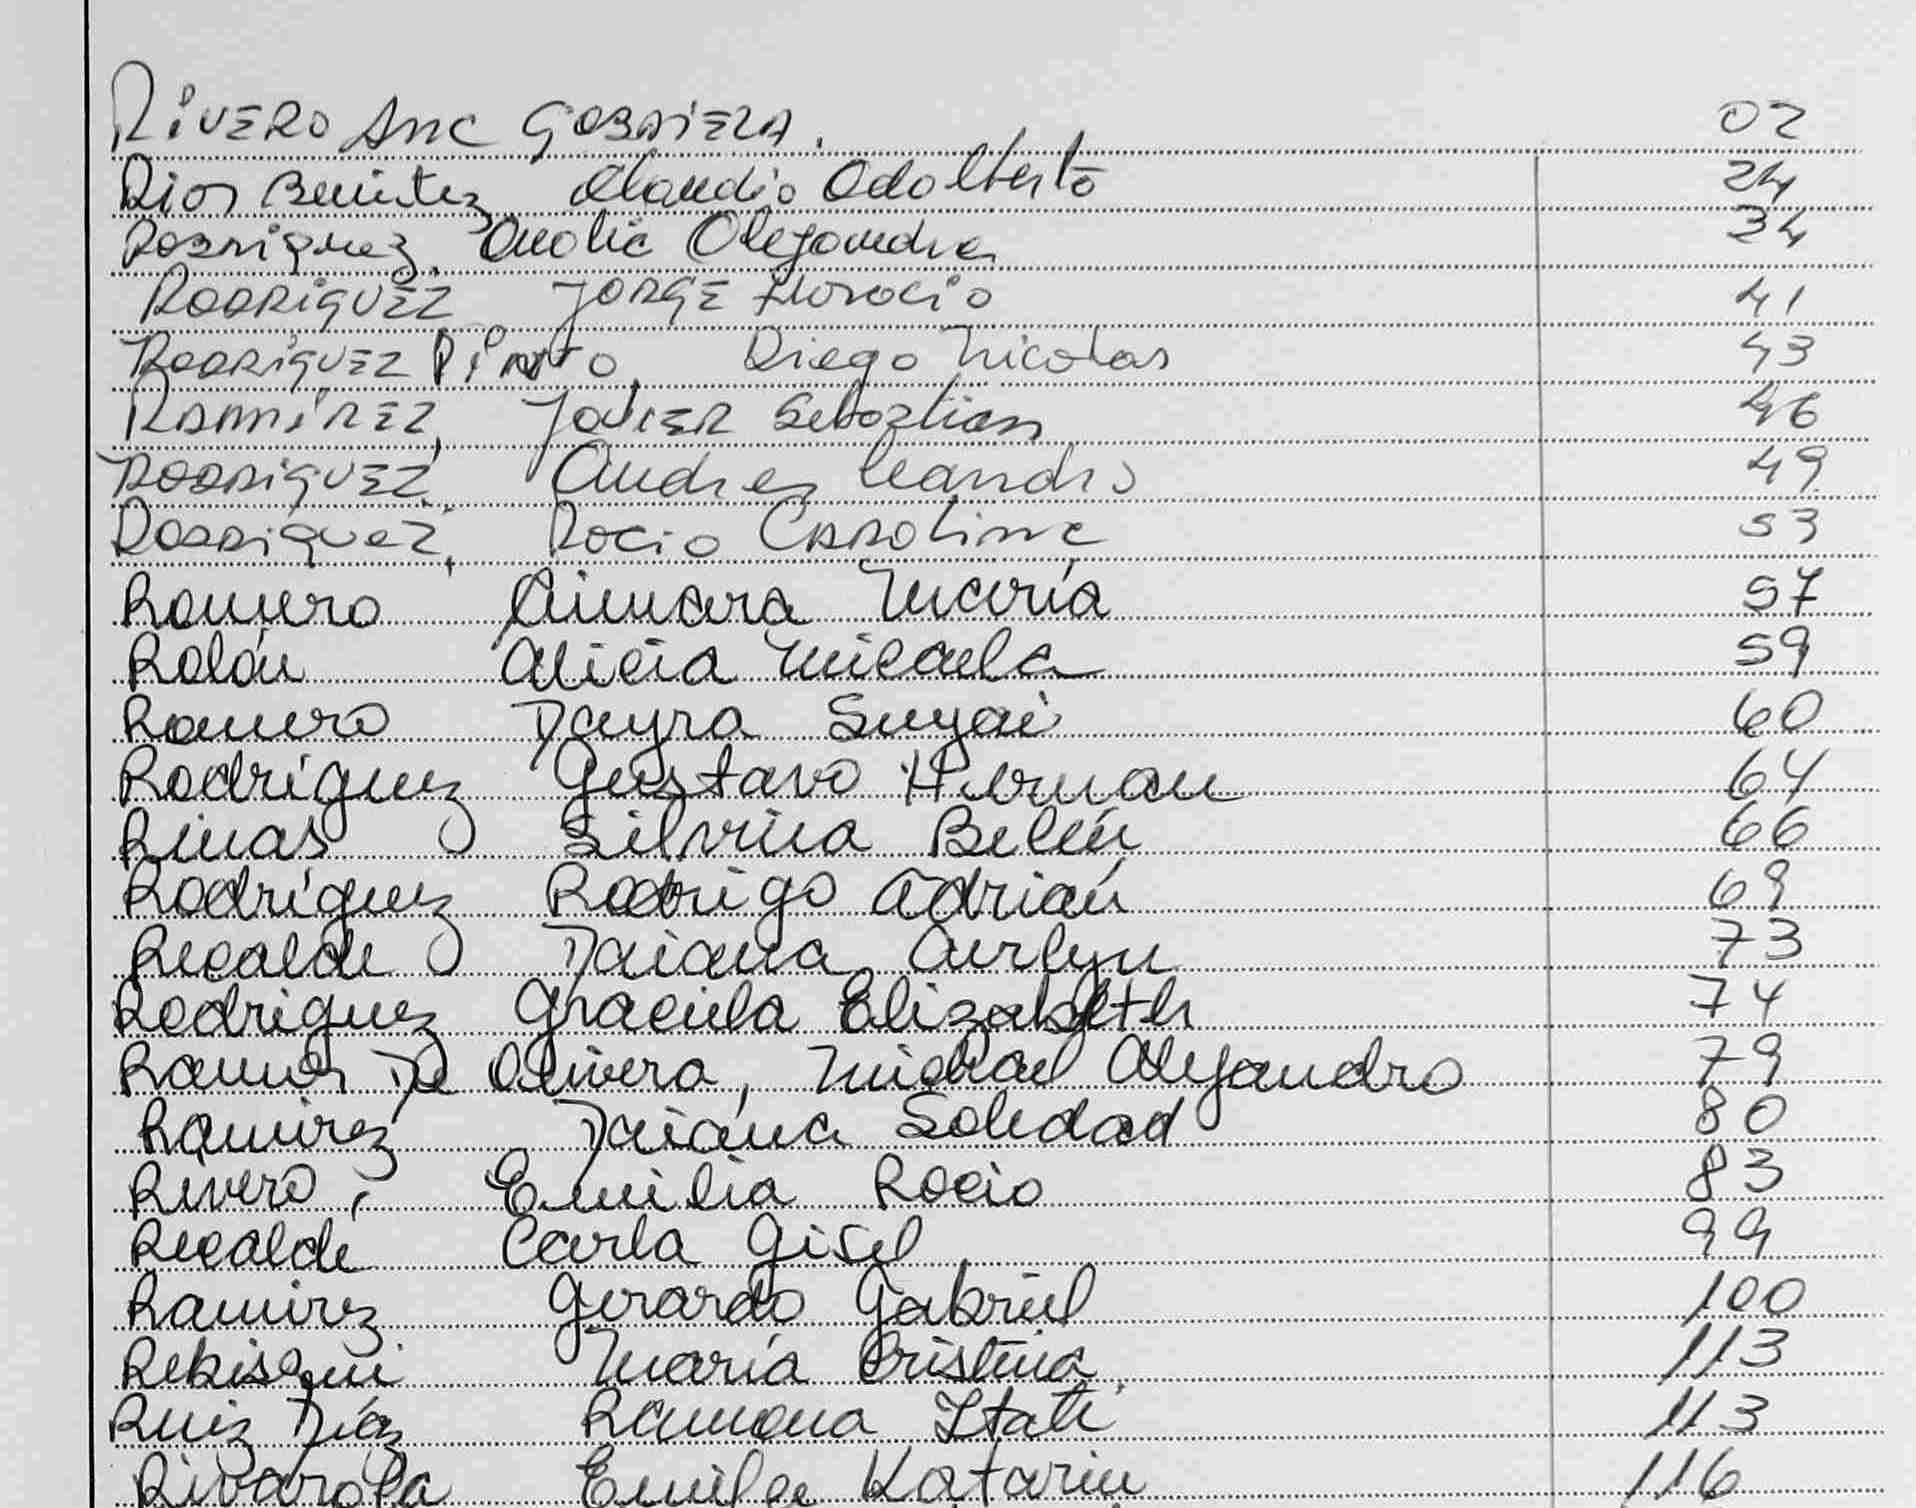 RIVERO Ana GABRIELA. 02
Rios Benitez Claudio Adalberto 24
Rodriguez, Analia Alejandra 34
RODRIGUEZ JORGE Horacio 41
RODRIGUEZ PINTO, Diego Nicolas 43
RAMIREZ, JAVIER Sebastian 46
RODRIGUEZ Andres Leandro 49
RODRIGUEZ, Rocio CAROLINA 53
Romero Aimara María 57
Rolón Alicia Micaela 59
Romero Dayra Suyai 60
Rodríguez Gustavo Hernan 64
Rivas Silvina Belén 66
Rodríguez Rodrigo Adrián 69
Recalde Daiana Aerlyn 73
Rodriguez Graciela Elizabeth 74
Ramos De Olivera, Michael Alejandro 79
Ramirez Daiana Soledad 80
Rivero, Emilia Rocio 83
Recalde Carla Gisel 99
Ramirez Gerardo Gabriel 100
María Cristina 113
Ruiz Díaz Ramona Itatí 113
Rivarola Katarin 116